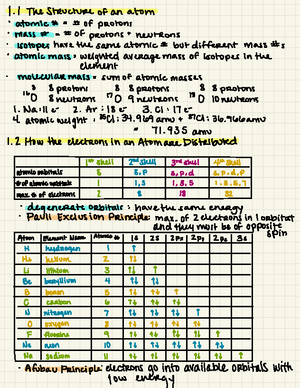 1.1 The Structure of an atom
• atomic # = # of protons
• mass # = # of protons + neutrons
• isotopes have the same atomic # but different mass #s
• atomic mass: weighted average mass of isotopes in the
element
• molecular mass = sum of atomic masses
8 8 protons 8 8 protons 8 8 protons
16O 8 neutrons 17O 9 neutrons 18O 10 neutrons
1. Na: 11 e⁻ 2. Ar: 18 e⁻ 3. Cl: 17 e⁻
4. atomic weight: 35Cl: 34.969 amu + 37Cl: 36.966 amu
= 71.935 amu
1.2 How the electrons in an Atom are Distributed
1st Shell 2nd Shell 3rd Shell 4th Shell
atomic orbitals S S, P S, p, d S, p, d, f
# of atomic orbitals 1 1, 3 1, 3, 5 1, 3, 5, 7
max # of electrons 2 8 18 32
• degenerate orbitals: have the same energy
• Pauli Exclusion Principle: max. of 2 electrons in 1 orbital
and they must be of opposite
spin
Atom Element Name Atomic # 1s 2s 2Px 2Py 2Pz 3s
H hydrogen 1 ↑
He helium 2 ↑↓
Li lithium 3 ↑↓ ↑
Be beryllium 4 ↑↓ ↑↓
B boron 5 ↑↓ ↑↓ ↑
C carbon 6 ↑↓ ↑↓ ↑ ↑
N nitrogen 7 ↑↓ ↑↓ ↑ ↑ ↑
O oxygen 8 ↑↓ ↑↓ ↑↓ ↑ ↑
F fluorine 9 ↑↓ ↑↓ ↑↓ ↑↓ ↑
Ne neon 10 ↑↓ ↑↓ ↑↓ ↑↓ ↑↓
Na sodium 11 ↑↓ ↑↓ ↑↓ ↑↓ ↑↓ ↑
• Aufbau Principle: electrons go into available orbitals with
low energy